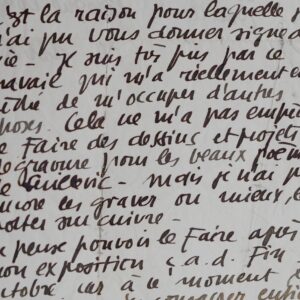 est la raison pour laquelle
j'ai pu vous donner signe d
vie - Je suis très pris par ce
travail qui m'a réellement e
de m'occuper d'autres
choses. Cela ne m'a pas empê
e faire des dessins et projets
e gravure pour les beaux poèm
e Guillevic - mais je n'ai p
ncore les graver ou mieux, 
sur cuivre -
e pense pouvoir le faire après
mon exposition c.a.d. Fin
octobre car à ce moment